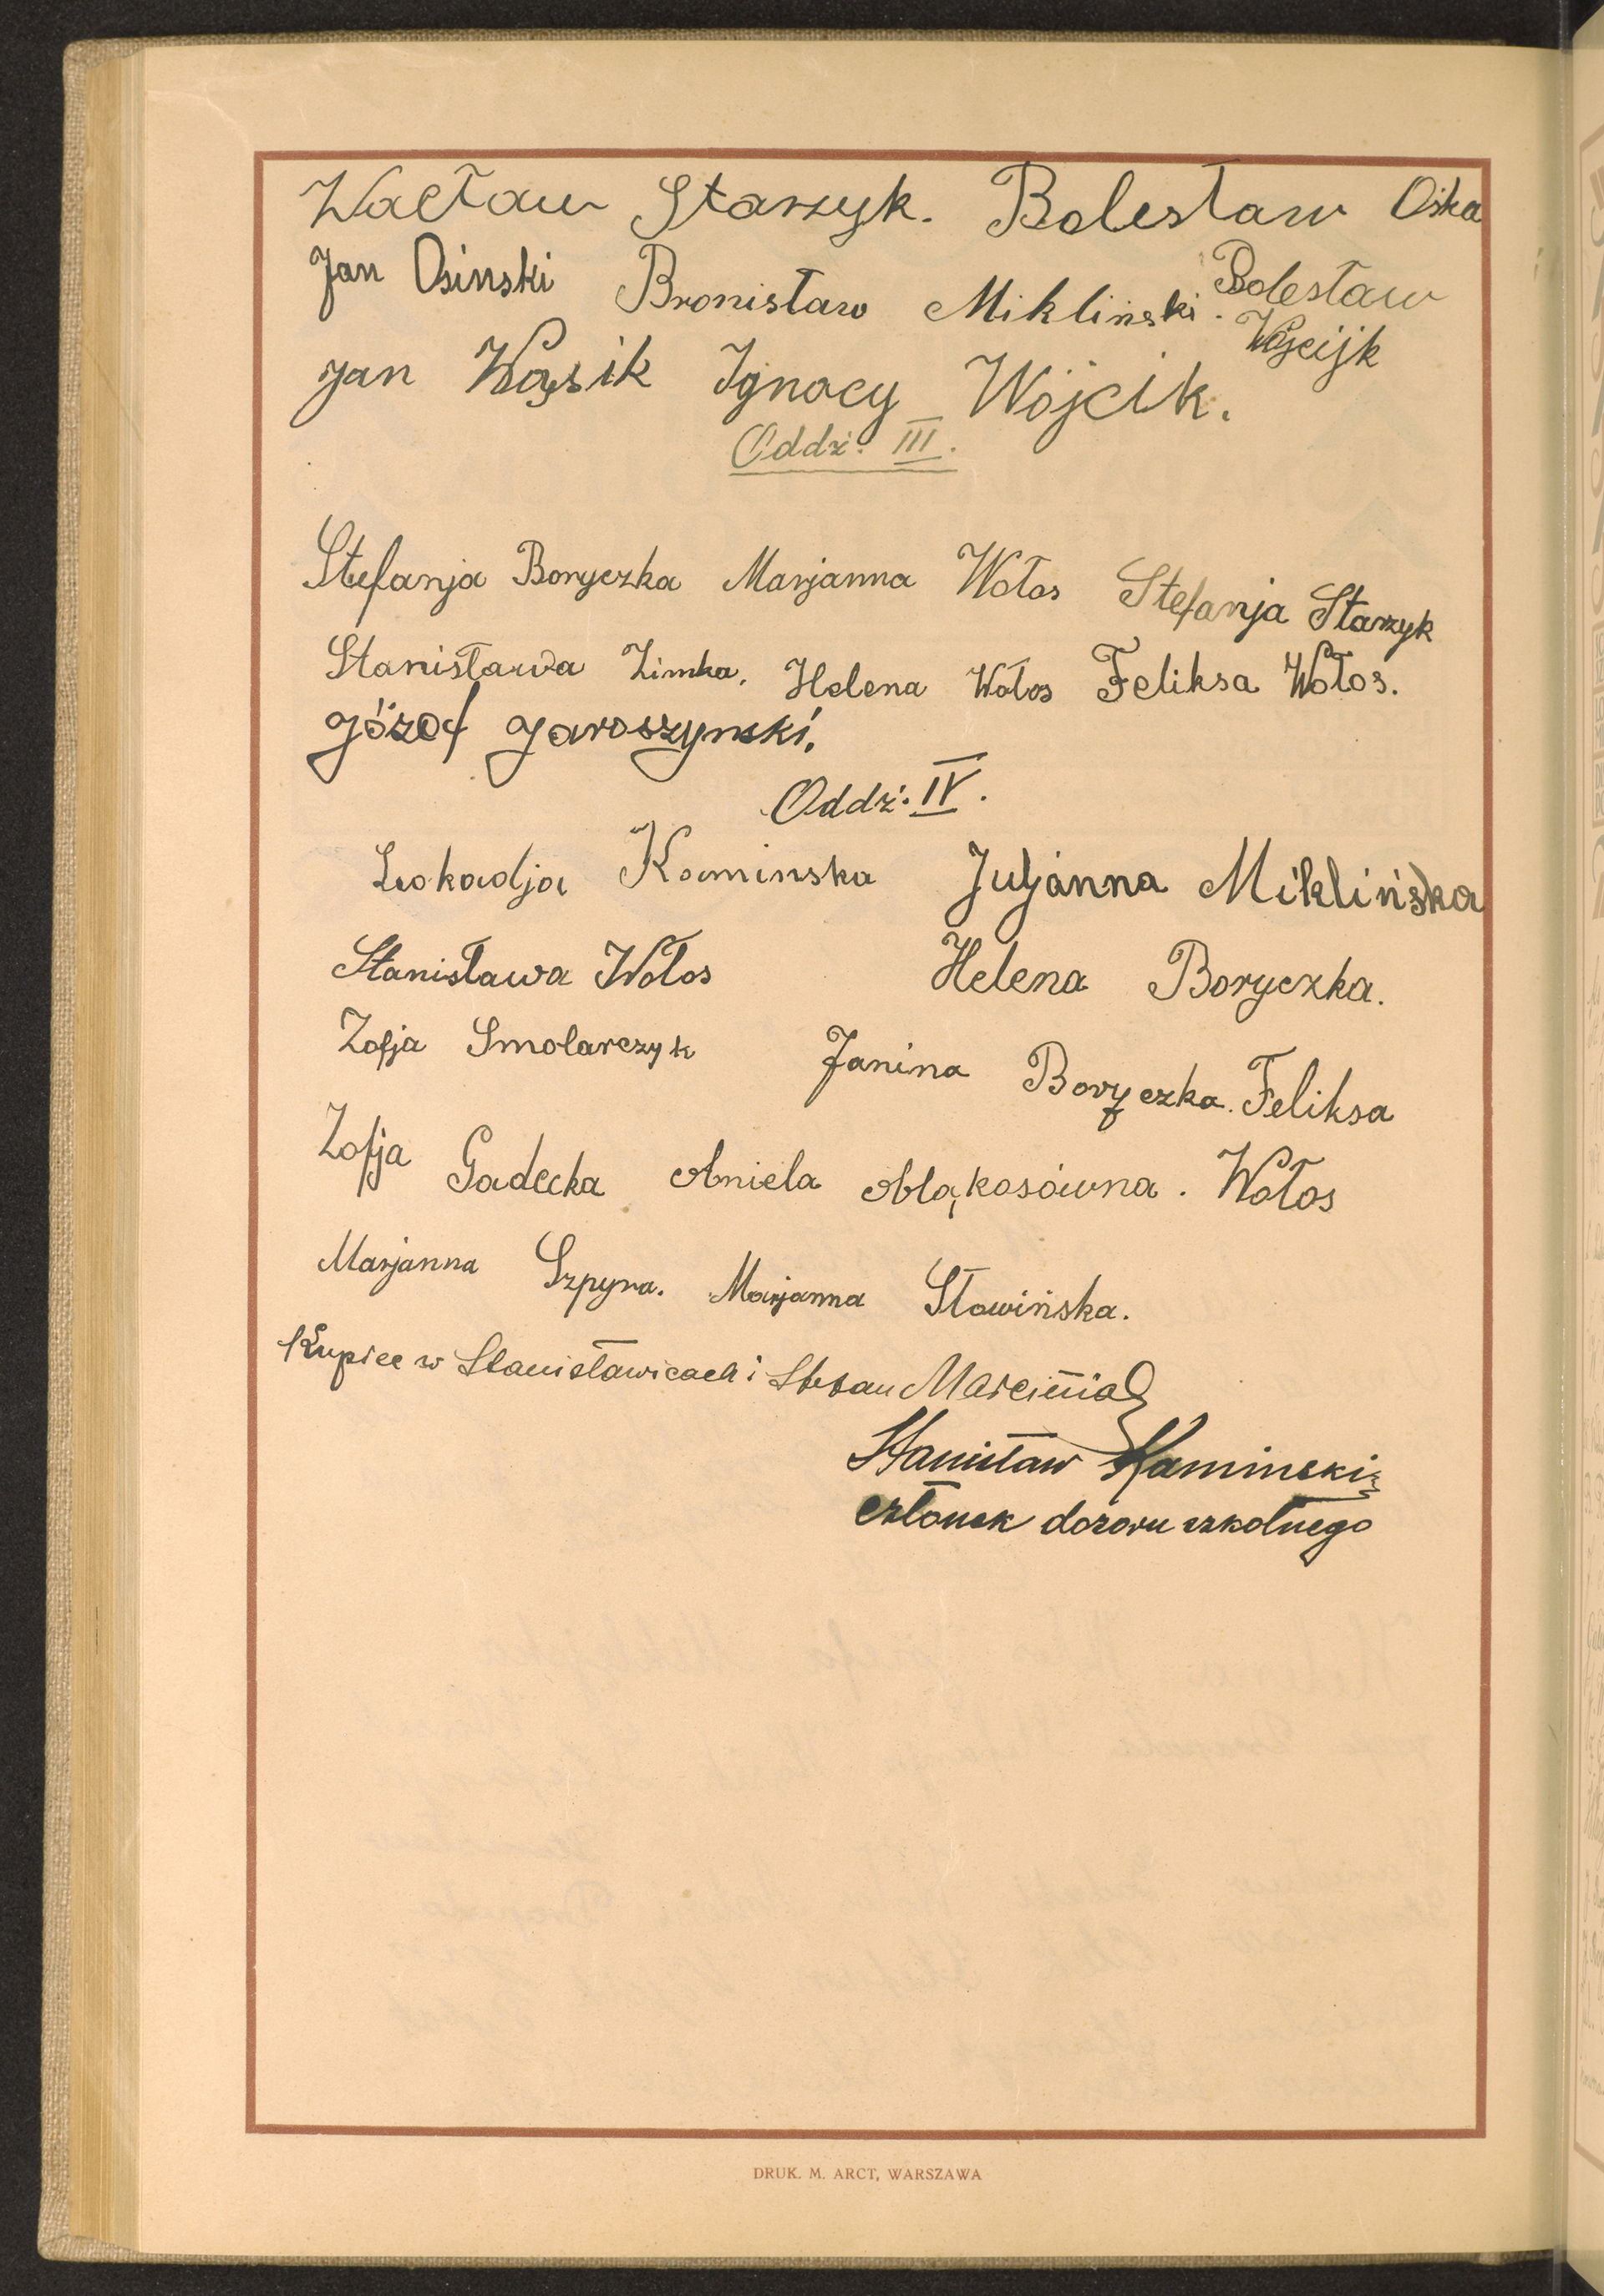 Wacław Starzyk. Bolesław Ośka
Jan Osinski Bronisław Mikliński. Bolesław
Wójcijk
Jan Wąsik Ignacy Wójcik.
Oddz. III.
Stefanja Boryczka Marjanna Wołos Stefanja Starzyk
Stanisława Zimka. Helena Wołos Feliksa Wołos.
Józef Jaroszynski.
Oddz. IV.
Leokadja Kaminska Juljanna Miklińska
Stanisława Wołos Helena Boryczka.
Zofja Smolarczyk Janina Boryczka. Feliksa
Zofja Gadecka Aniela Abłąkosówna. Wołos
Marjanna Szpyra. Marjanna Sławińska.
Kupiec w Stanisławicach i Stefan Marciniak
Stanisław Kaminski
członek dozoru szkolnego
DRUK. M. ARCT, WARSZAWA